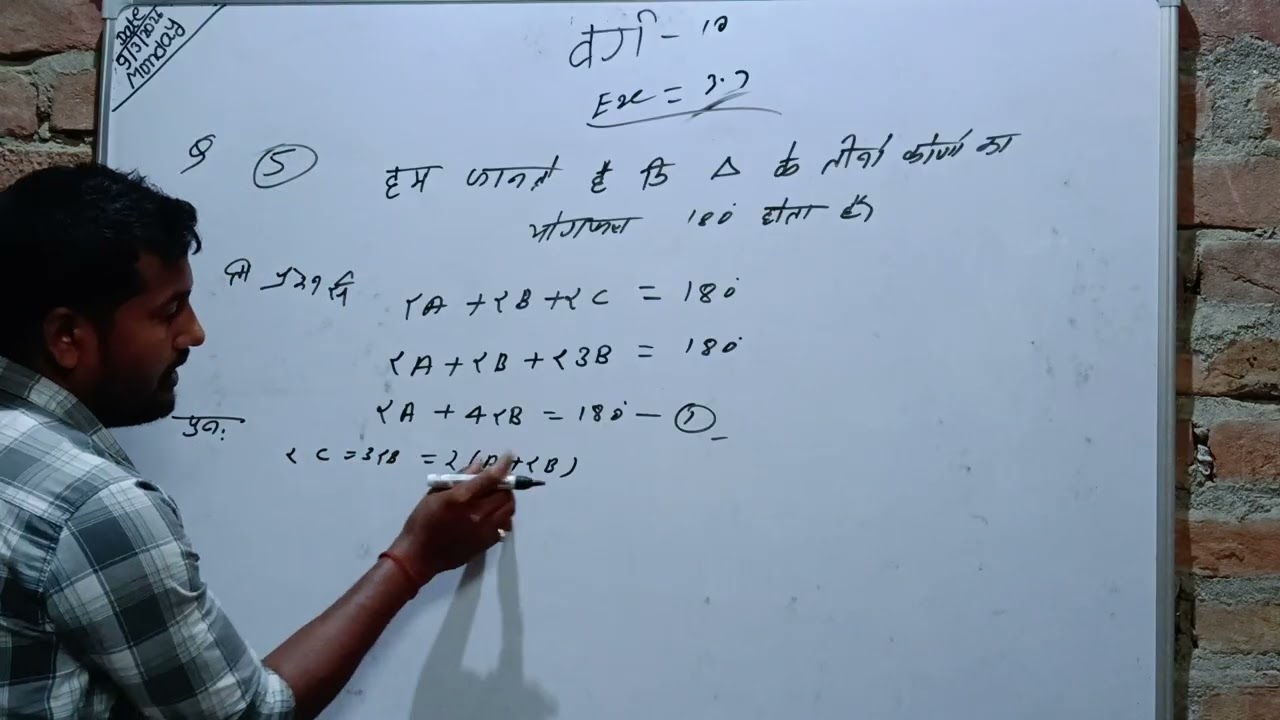 Date
9/3/2026
Monday
वर्ग - 10
Exe = 3.7
Q 5 हम जानते हैं कि Δ के तीनों कोणों का
योगफल 180° होता है।
तो प्रश्न से ∠A + ∠B + ∠C = 180°
∠A + ∠B + ∠3B = 180°
∠A + 4∠B = 180° — ①
पुनः
∠C = 3∠B = 2(A + ∠B)